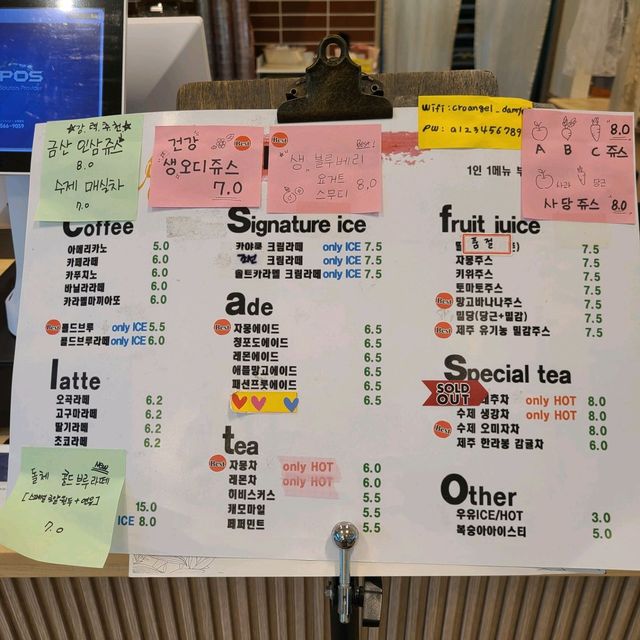 POS
Solutions Provider
★강력추천★
금산 인삼쥬스
8.0
수제 매실차
7.0
건강 Best
생오디쥬스
7.0
Best!
생, 블루베리
요거트
스무디 8.0
Wifi: croangel_damy
PW: a123456789
8.0
A B C 쥬스
사과 당근
사당쥬스 8.0
1인 1메뉴
Coffee
아메리카노 5.0
카페라떼 6.0
카푸치노 6.0
바닐라라떼 6.0
카라멜마끼아또 6.0
Best 콜드브루 only ICE 5.5
콜드브루라떼 only ICE 6.0
latte
오곡라떼 6.2
고구마라떼 6.2
딸기라떼 6.2
초코라떼 6.2
NEW
돌체 콜드브루라떼
7.0
15.0
ICE 8.0
Signature ice
카야로 크림라떼 only ICE 7.5
크림라떼 only ICE 7.5
솔트카라멜 크림라떼 only ICE 7.5
ade
Best 자몽에이드 6.5
청포도에이드 6.5
레몬에이드 6.5
애플망고에이드 6.5
패션프룻에이드 6.5
6.5
tea
Best 자몽차 only HOT 6.0
레몬차 only HOT 6.0
히비스커스 5.5
캐모마일 5.5
페퍼민트 5.5
fruit juice
품절 7.5
자몽주스 7.5
키위주스 7.5
토마토주스 7.5
Best 망고바나나주스 7.5
밀당(당근+밀감) 7.5
Best 제주 유기농 밀감주스 7.5
Special tea
SOLD OUT
only HOT 8.0
수제 생강차 only HOT 8.0
Best 수제 오미자차 8.0
제주 한라봉 감귤차 6.0
Other
우유ICE/HOT 3.0
복숭아아이스티 5.0